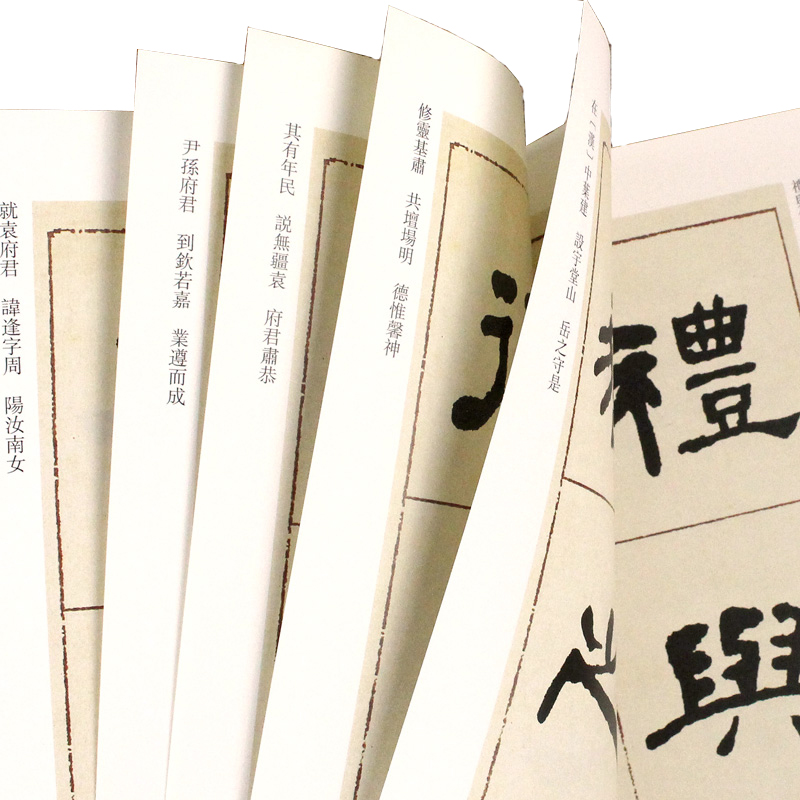 禮與
在〔漢〕中葉建 設宇堂山 岳之守是
修靈基肅 共壇場明 德惟馨神
其有年民 説無疆袁 府君肅恭
尹孫府君 到欽若嘉 業遵而成
就袁府君 諱逢字周 陽汝南女